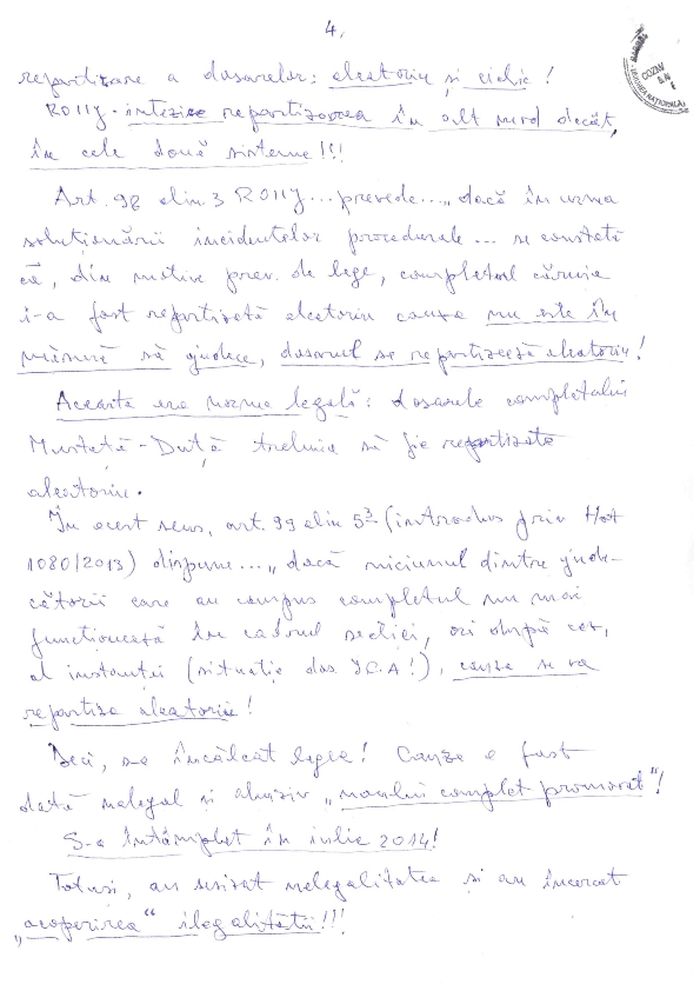 4.
repartizare a dosarelor: aleatoriu și ciclic!
ROIIJ - interzice repartizarea în alt mod decât
în cele două sisteme!!!
Art. 98 alin. 3 ROIIJ... prevede... „dacă în urma
soluționării incidentelor procedurale... se constată
că, din motive prev. de lege, completul căruia
i-a fost repartizată aleatoriu cauza nu este în
măsură să judece, dosarul se repartizează aleatoriu!
Aceasta era norma legală: dosarele completului
Mustață-Duță trebuia să fie repartizate
aleatoriu.
În acest sens, art. 99 alin 5³ (introdus prin Hot
1080/2013) dispune... „dacă niciunul dintre jude-
cătorii care au compus completul nu mai
funcționează în cadrul secției, ori după caz,
al instanței (situație dos. ICA!), cauza se va
repartiza aleatoriu!
Deci, s-a încălcat legea! Cauza a fost
dată nelegal și abuziv „noului complet promovat"!
S-a întâmplat în iulie 2014!
Totuși, au sesizat nelegalitatea și au încercat
„acoperirea" ilegalității!!!
COZIA